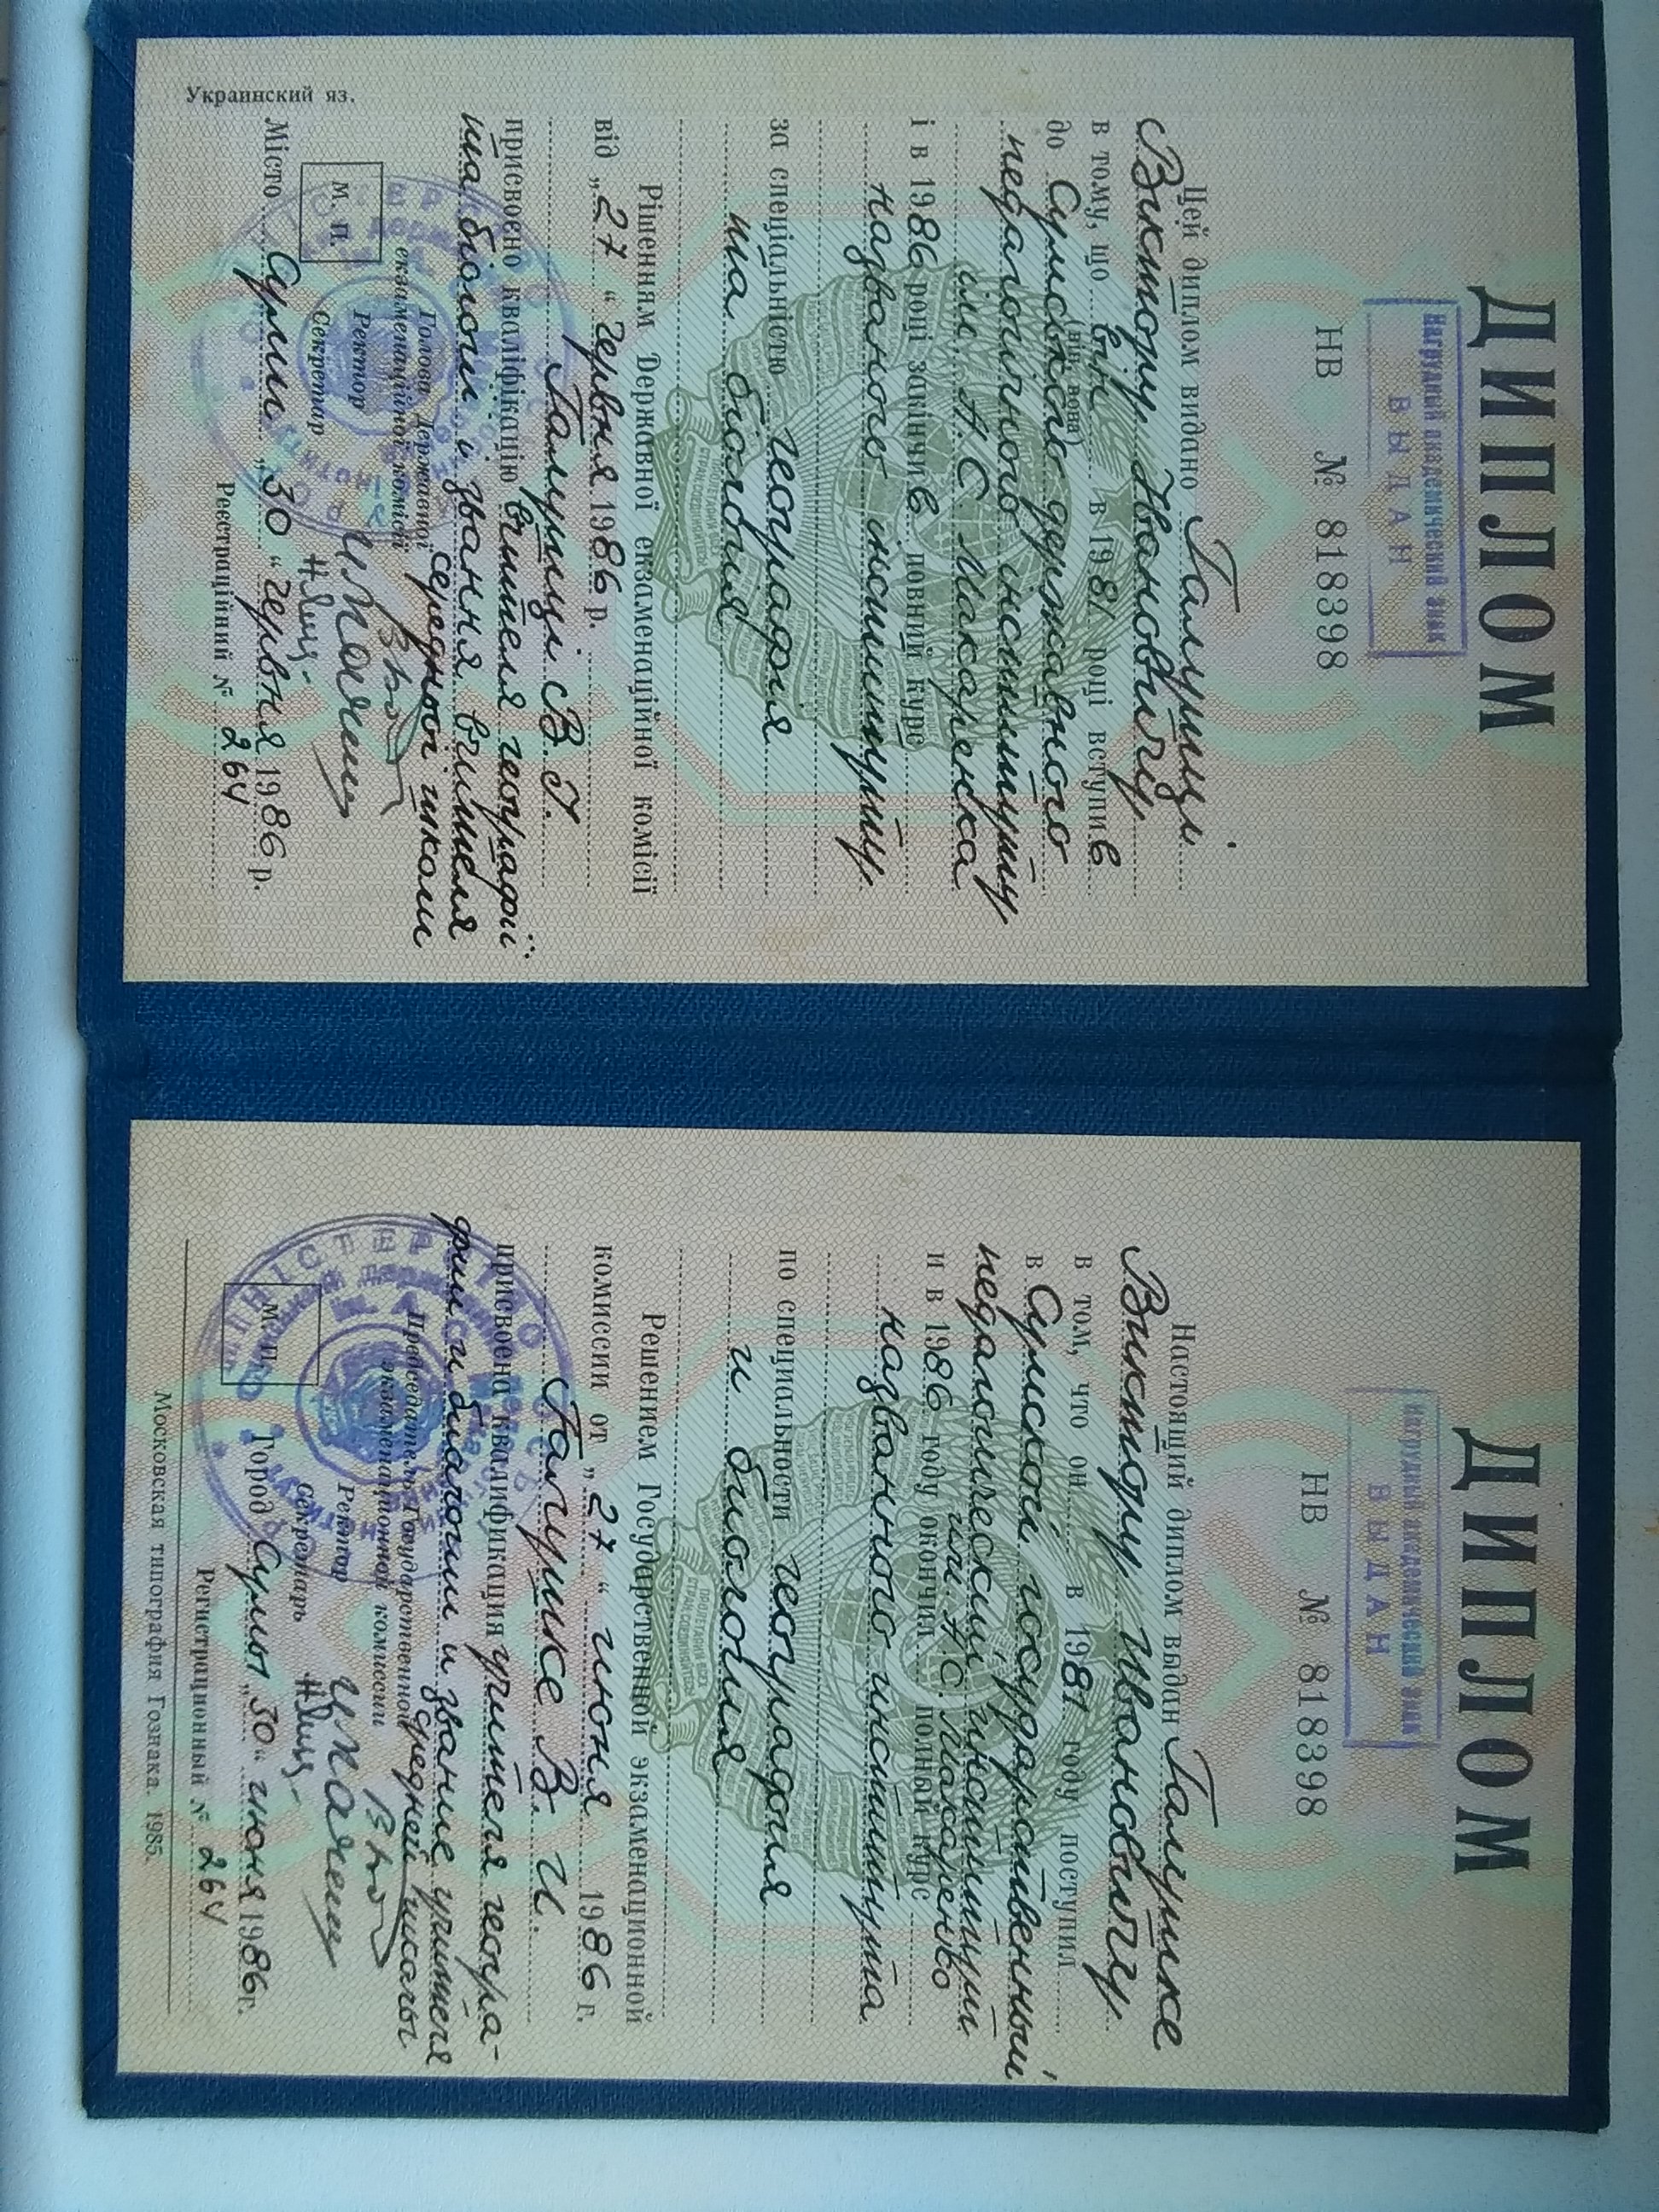 ДИПЛОМ
Нагрудный академический знак
ВЫДАН
НВ № 818398
Цей диплом видано Галушці
Віктору Івановичу
в тому, що він в 1981 році вступив
(він, вона)
до Сумського державного
педагогічного інституту
ім. А.С. Макаренка
і в 1986 році закінчив повний курс
названого інституту
за спеціальністю географія
та біологія
Рішенням Державної екзаменаційної комісії
від „27“ червня 1986 р.
Галушці В. І.
присвоєно кваліфікацію вчителя географії
та біології і звання вчителя
середньої школи
Голова Державної
екзаменаційної комісії
Ректор
Секретар
М. П.
Місто Суми „30“ червня 1986 р.
Реєстраційний № 264
Украинский яз.
ДИПЛОМ
Нагрудный академический знак
ВЫДАН
НВ № 818398
Настоящий диплом выдан Галушке
Виктору Ивановичу
в том, что он в 1981 году поступил
в Сумской государственный
педагогический институт
им. А.С. Макаренко
и в 1986 году окончил полный курс
названного института
по специальности география
и биология
Решением Государственной экзаменационной
комиссии от „27“ июня 1986 г.
Галушке В. И.
присвоена квалификация учителя геогра-
фии и биологии и звание учителя
средней школы
Председатель Государственной
экзаменационной комиссии
Ректор
Секретарь
М. П.
Город Сумы „30“ июня 1986 г.
Регистрационный № 264
Московская типография Гознака. 1985.